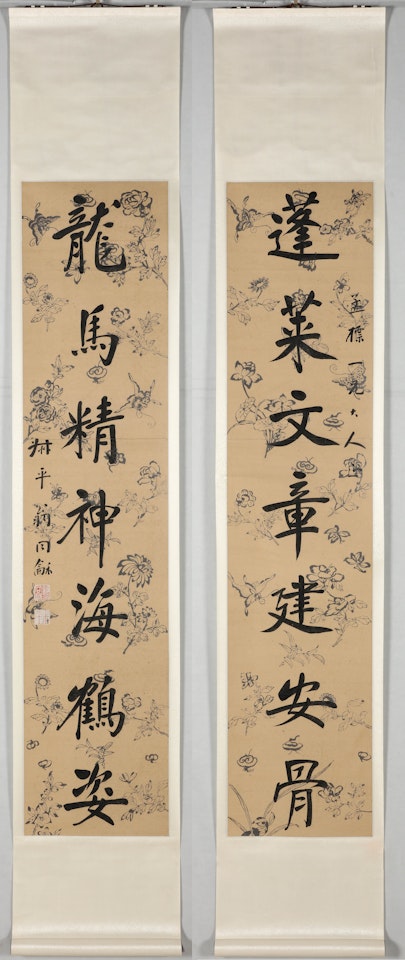 孟標一兄大人
蓬萊文章建安骨
龍馬精神海鶴姿
叔平翁同龢